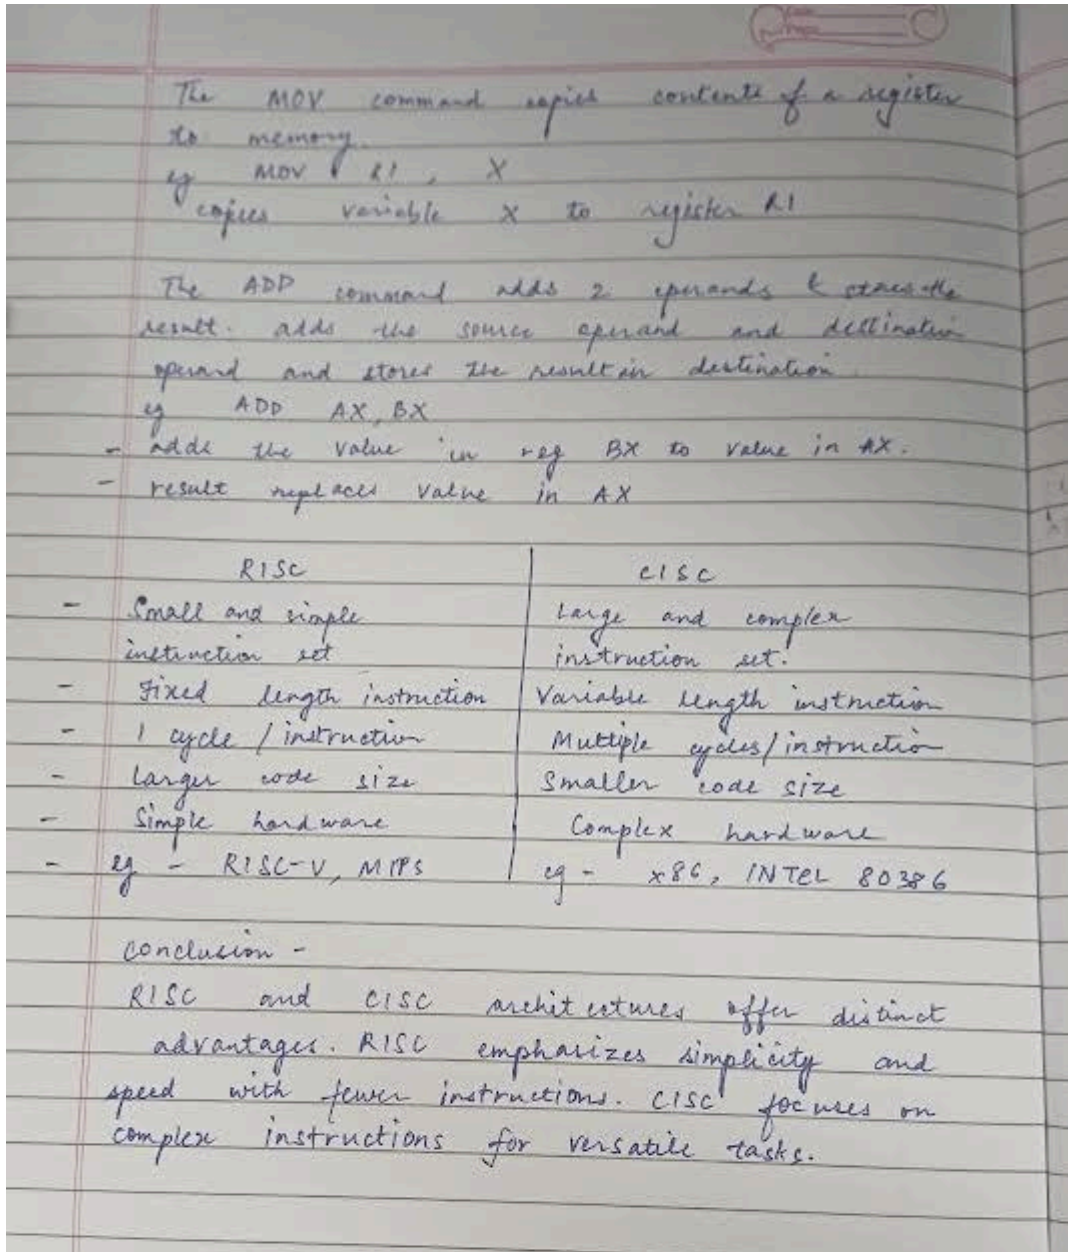 The MOV command copies contents of a register
to memory.
eg MOV R1, X
copies variable X to register R1
The ADD command adds 2 operands & stores the
result. adds the source operand and destination
operand and stores the result in destination.
eg ADD AX, BX
- adds the value in reg BX to value in AX.
- result replaces value in AX
RISC CISC
- Small and simple Large and complex
instruction set instruction set.
- Fixed length instruction Variable length instruction
- 1 cycle / instruction Multiple cycles/instruction
- Larger code size Smaller code size
- Simple hardware Complex hardware
- eg - RISC-V, MIPS eg - x86, INTEL 80386
Conclusion -
RISC and CISC architectures offer distinct
advantages. RISC emphasizes simplicity and
speed with fewer instructions. CISC focuses on
complex instructions for versatile tasks.